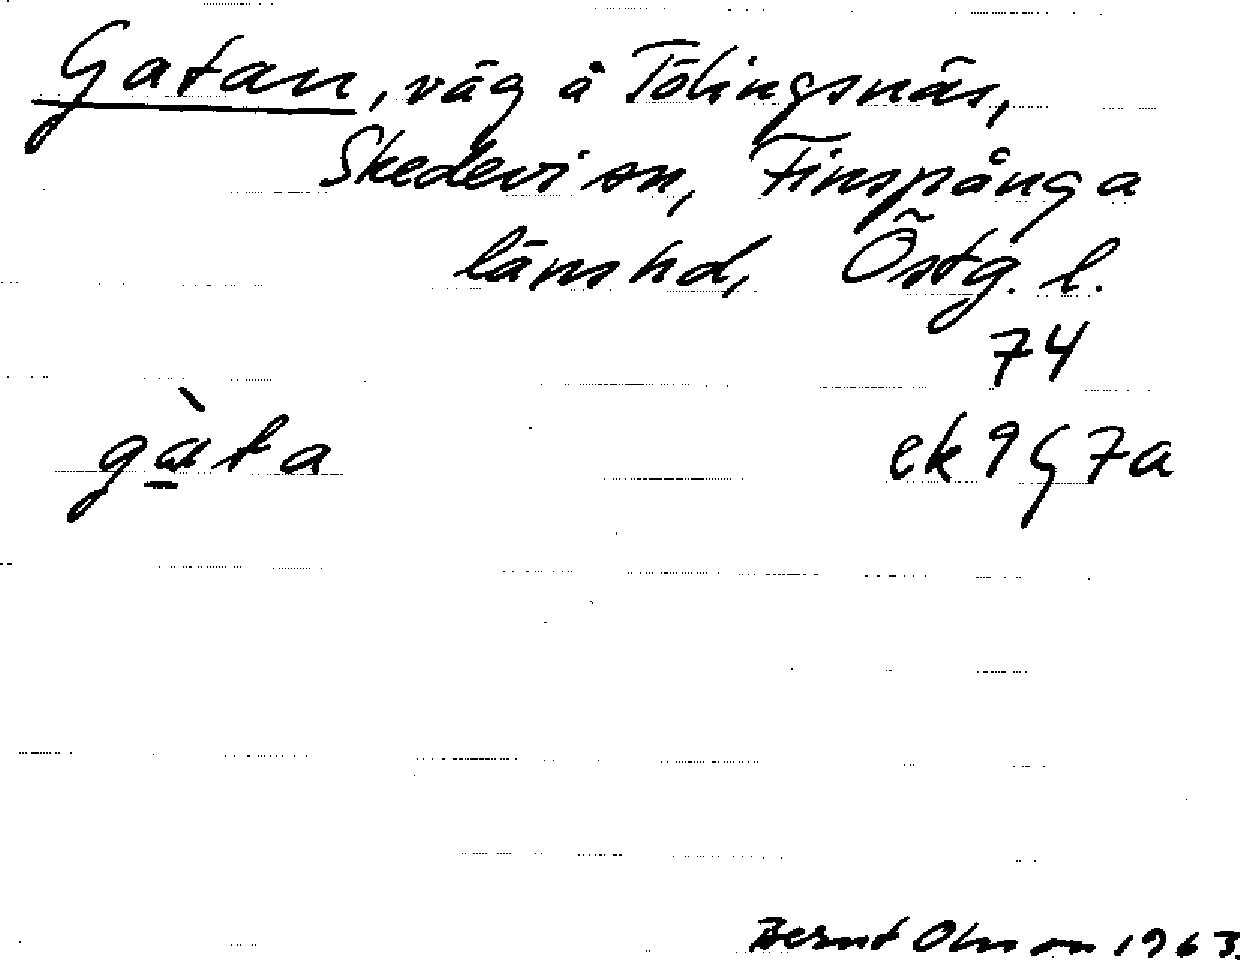 Gatan, väg å Tölingsnäs,
Skedevi sn, Finspånga
länshd, Östg. l.
74
gàta
ek 9 G 7a
Bernt Olsson 1963.